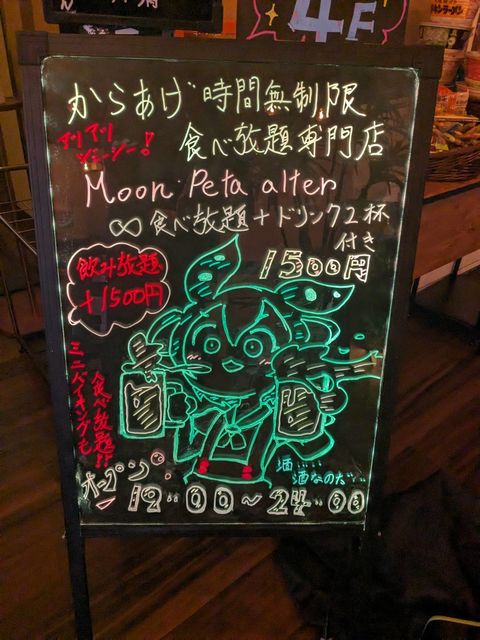 4F
からあげ時間無制限
アツアツ
ジューシー！
食べ放題専門店
Moon Peta alter
∞食べ放題＋ドリンク2杯
付き
1500円
飲み放題
＋1500円
ミニバイキングも
食べ放題!!
酒……
酒なのだ…
オープン
19:00～24:00